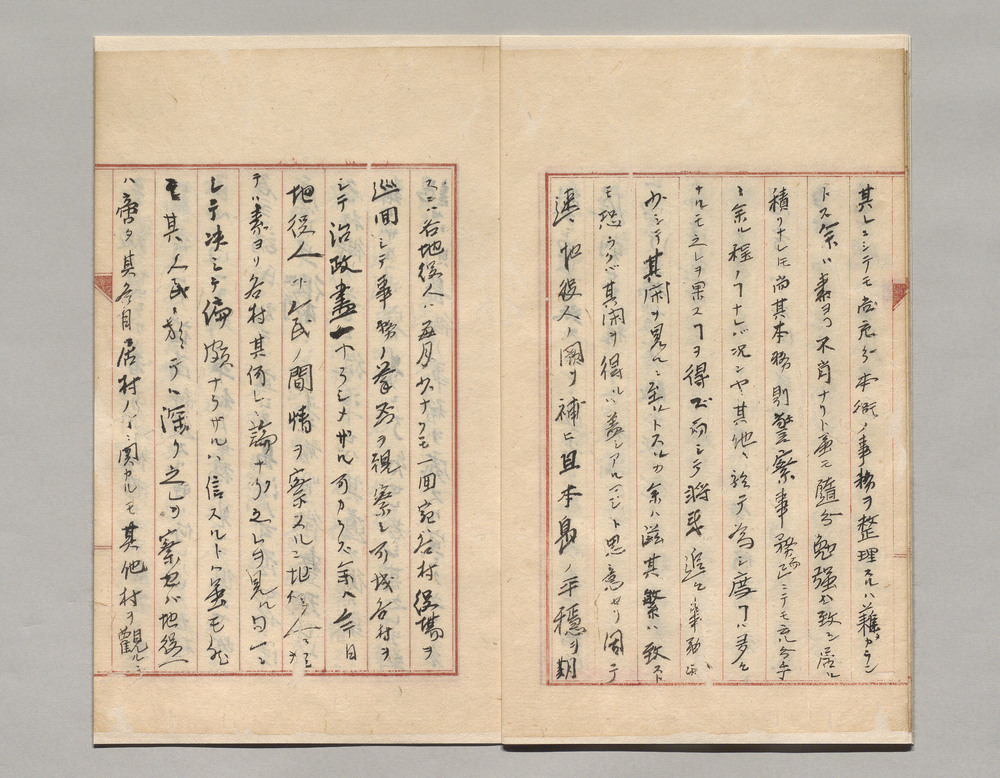 其レニシテモ尚充分本衙ノ事務ヲ整理スルハ難カラン
トス余ハ素ヨリ不肖ナリト雖モ随分勉強ヲ致シ居ル
積リナレ𪜈尚其本務則警察事務ニテモ充分
ニ余ル程ノヿナレバ況ンヤ其他ニ於テ為シ度ヿハ多々
ナルモ之レヲ果スヿヲ得ズ而シテ将来追々事務
少シテ其閑ヲ見ルニ至ルトスルカ余ハ滋其繁ハ致ス
モ恐ラクハ其閑ヲ得ルハ蓋シアルマジト思意セリ因テ
速ニ地役人ノ闕ヲ補ヒ且本島ノ平穏ヲ期
スニハ各地役人ハ五月少ナクモ一回宛各村役場ヲ
巡回シテ事務ノ挙否ヲ視察シ可成各村ヲ
シテ治政画一ナラシメザル可カラズ余ハ今日
地役人ト人民ノ間情ヲ察スルニ地役人ニ
テハ素ヨリ各村其何レニ論ナク之レヲ見ル同一ニ
シテ决シテ偏頗ナラザルハ信スルト雖モ
其人民ニ於テハ深ク之レヲ察セバ地役人
ハ啻タ其各自居村ノミニ関カルモ其他村ヲ観ル